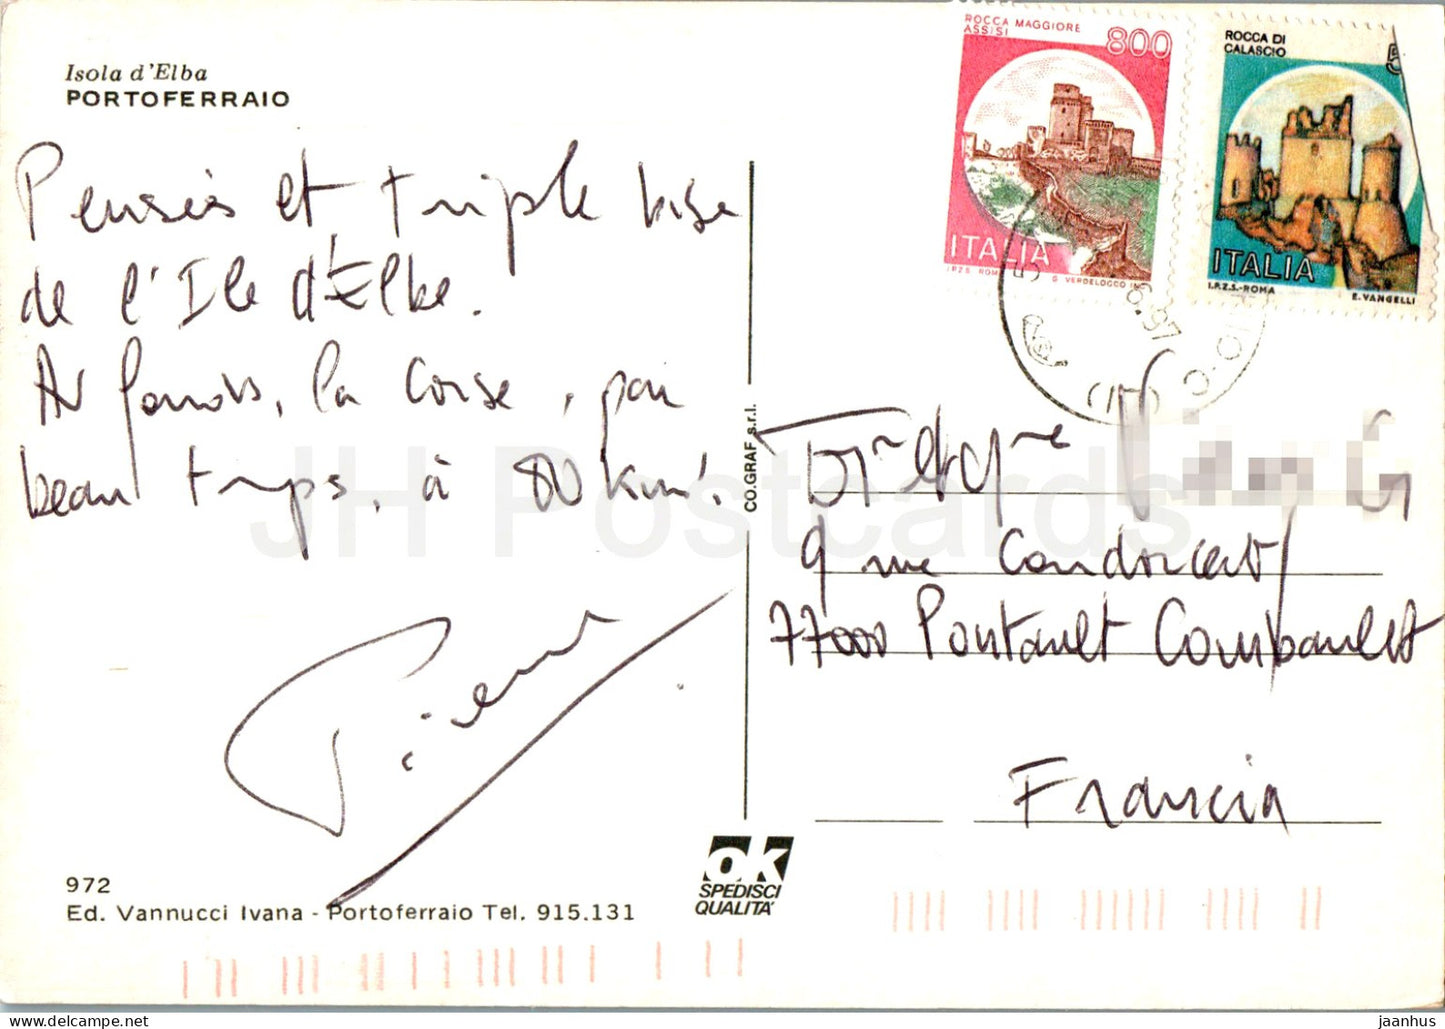 Isola d'Elba
PORTOFERRAIO
Pensées et triple bise
de l'Ile d'Elbe.
Au panois, la Corse, par
beau temps, à 80 km!
Pierre
972
Ed. Vannucci Ivana - Portoferraio Tel. 915.131
CO.GRAF s.r.l.
ok
SPEDISCI
QUALITA'
ROCCA MAGGIORE
ASSISI
800
ITALIA
I.P.Z.S. ROMA
G. VERDELOCCO
ROCCA DI
CALASCIO
5
ITALIA
I.P.Z.S.-ROMA
E. VANGELLI
97
Mr et Me G
9 rue Condorcet
77000 Pontault Combault
Francia
JH Postcards
jaanhus
jaanhus.com